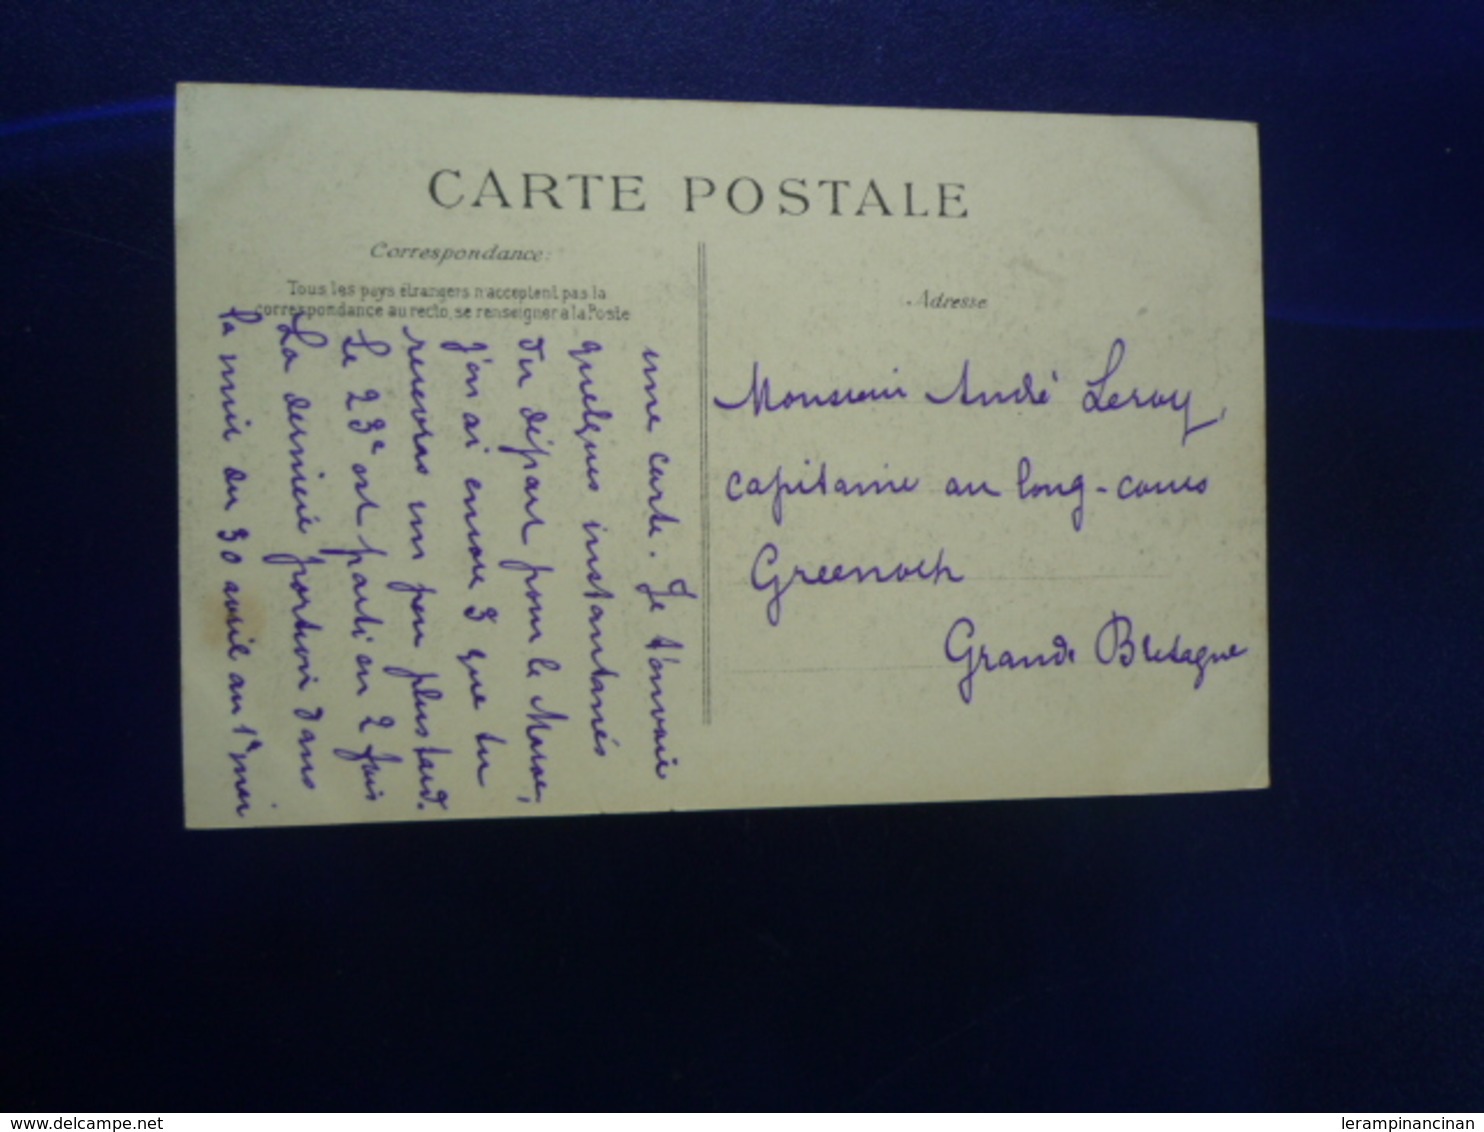 CARTE POSTALE
Correspondance:
Tous les pays étrangers n'acceptent pas la
correspondance au recto, se renseigner à la Poste
Adresse
une carte. Je t'envoie
quelques instantanés
du départ pour le Maroc,
j'en ai encore 3 que tu
recevras un peu plus tard.
Le 23e est parti en 2 fois
La dernière portion dans
la nuit du 30 avril au 1er mai
Monsieur André Leroy,
capitaine au long-cours
Greenock
Grande Bretagne
www.delcampe.net
lerampinancinan